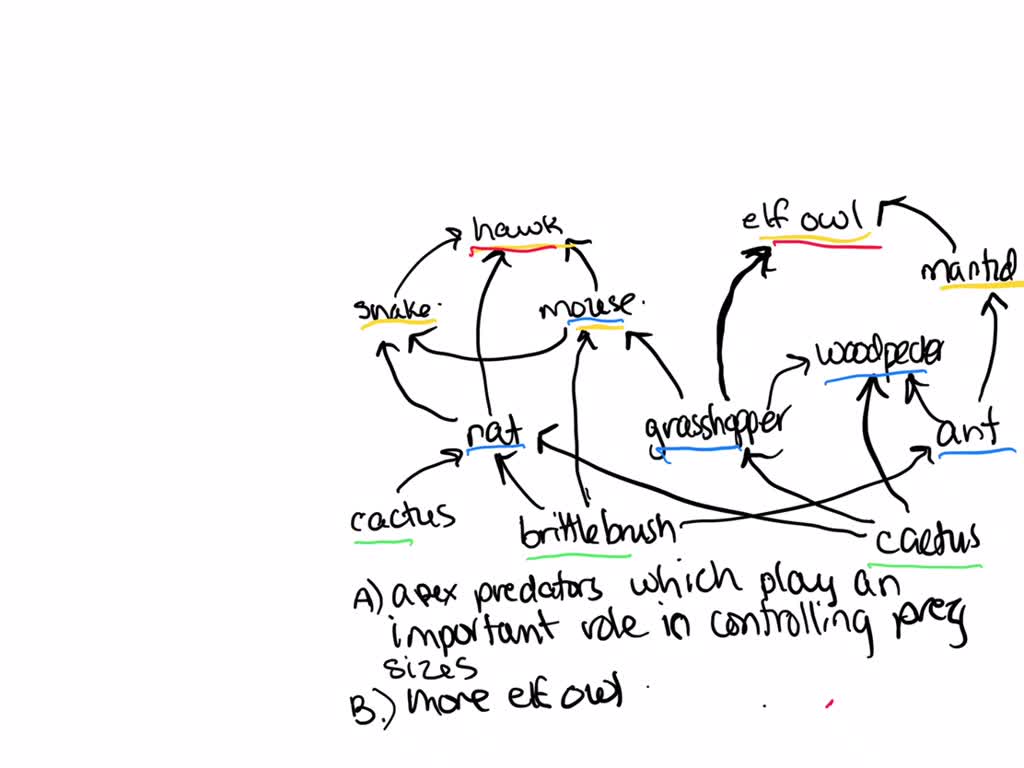 hawk
elf owl
mantid
snake.
mouse.
woodpecker
rat
grasshopper
ant
cactus
brittlebrush
cactus
A) apex predators which play an
important role in controlling prey
sizes
B.) more elf owl